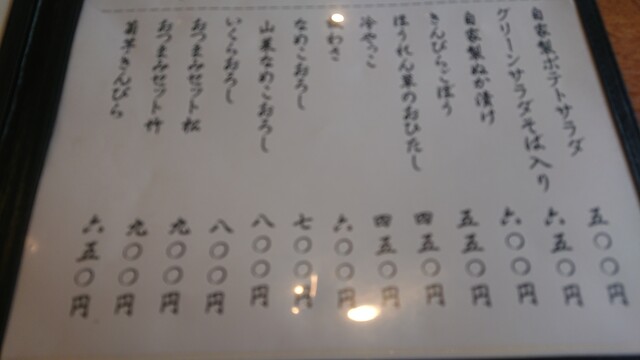 自家製ポテトサラダ 五〇〇円
グリーンサラダそば入り 六五〇円
自家製ぬか漬け 六〇〇円
きんぴらごぼう 五五〇円
ほうれん草のおひたし 四五〇円
冷やっこ 四五〇円
わさ 六〇〇円
なめこおろし 七〇〇円
山菜なめこおろし 八〇〇円
いくらおろし 八〇〇円
おつまみセット松 九〇〇円
おつまみセット竹 九〇〇円
きんぴら 六五〇円